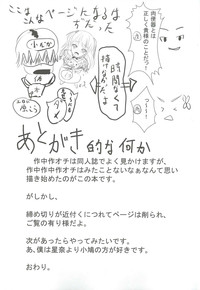 ここは
こんなページになるはず
だった
時間なくて
描けなかったよ
肉便器とは
正しく貴様のことか！
つーー！
あとがき的な何か
作中作オチは同人誌でよく見かけますが、
作中作中作オチはみたことないなぁなんて思い
描き始めたのがこの本です。
がしかし、
締め切りが近付くにつれてページは削られ、
ご覧の有り様だよ。
次があったらやってみたいです。
あ、僕は星奈より小鳩の方が好きです。
おわり。